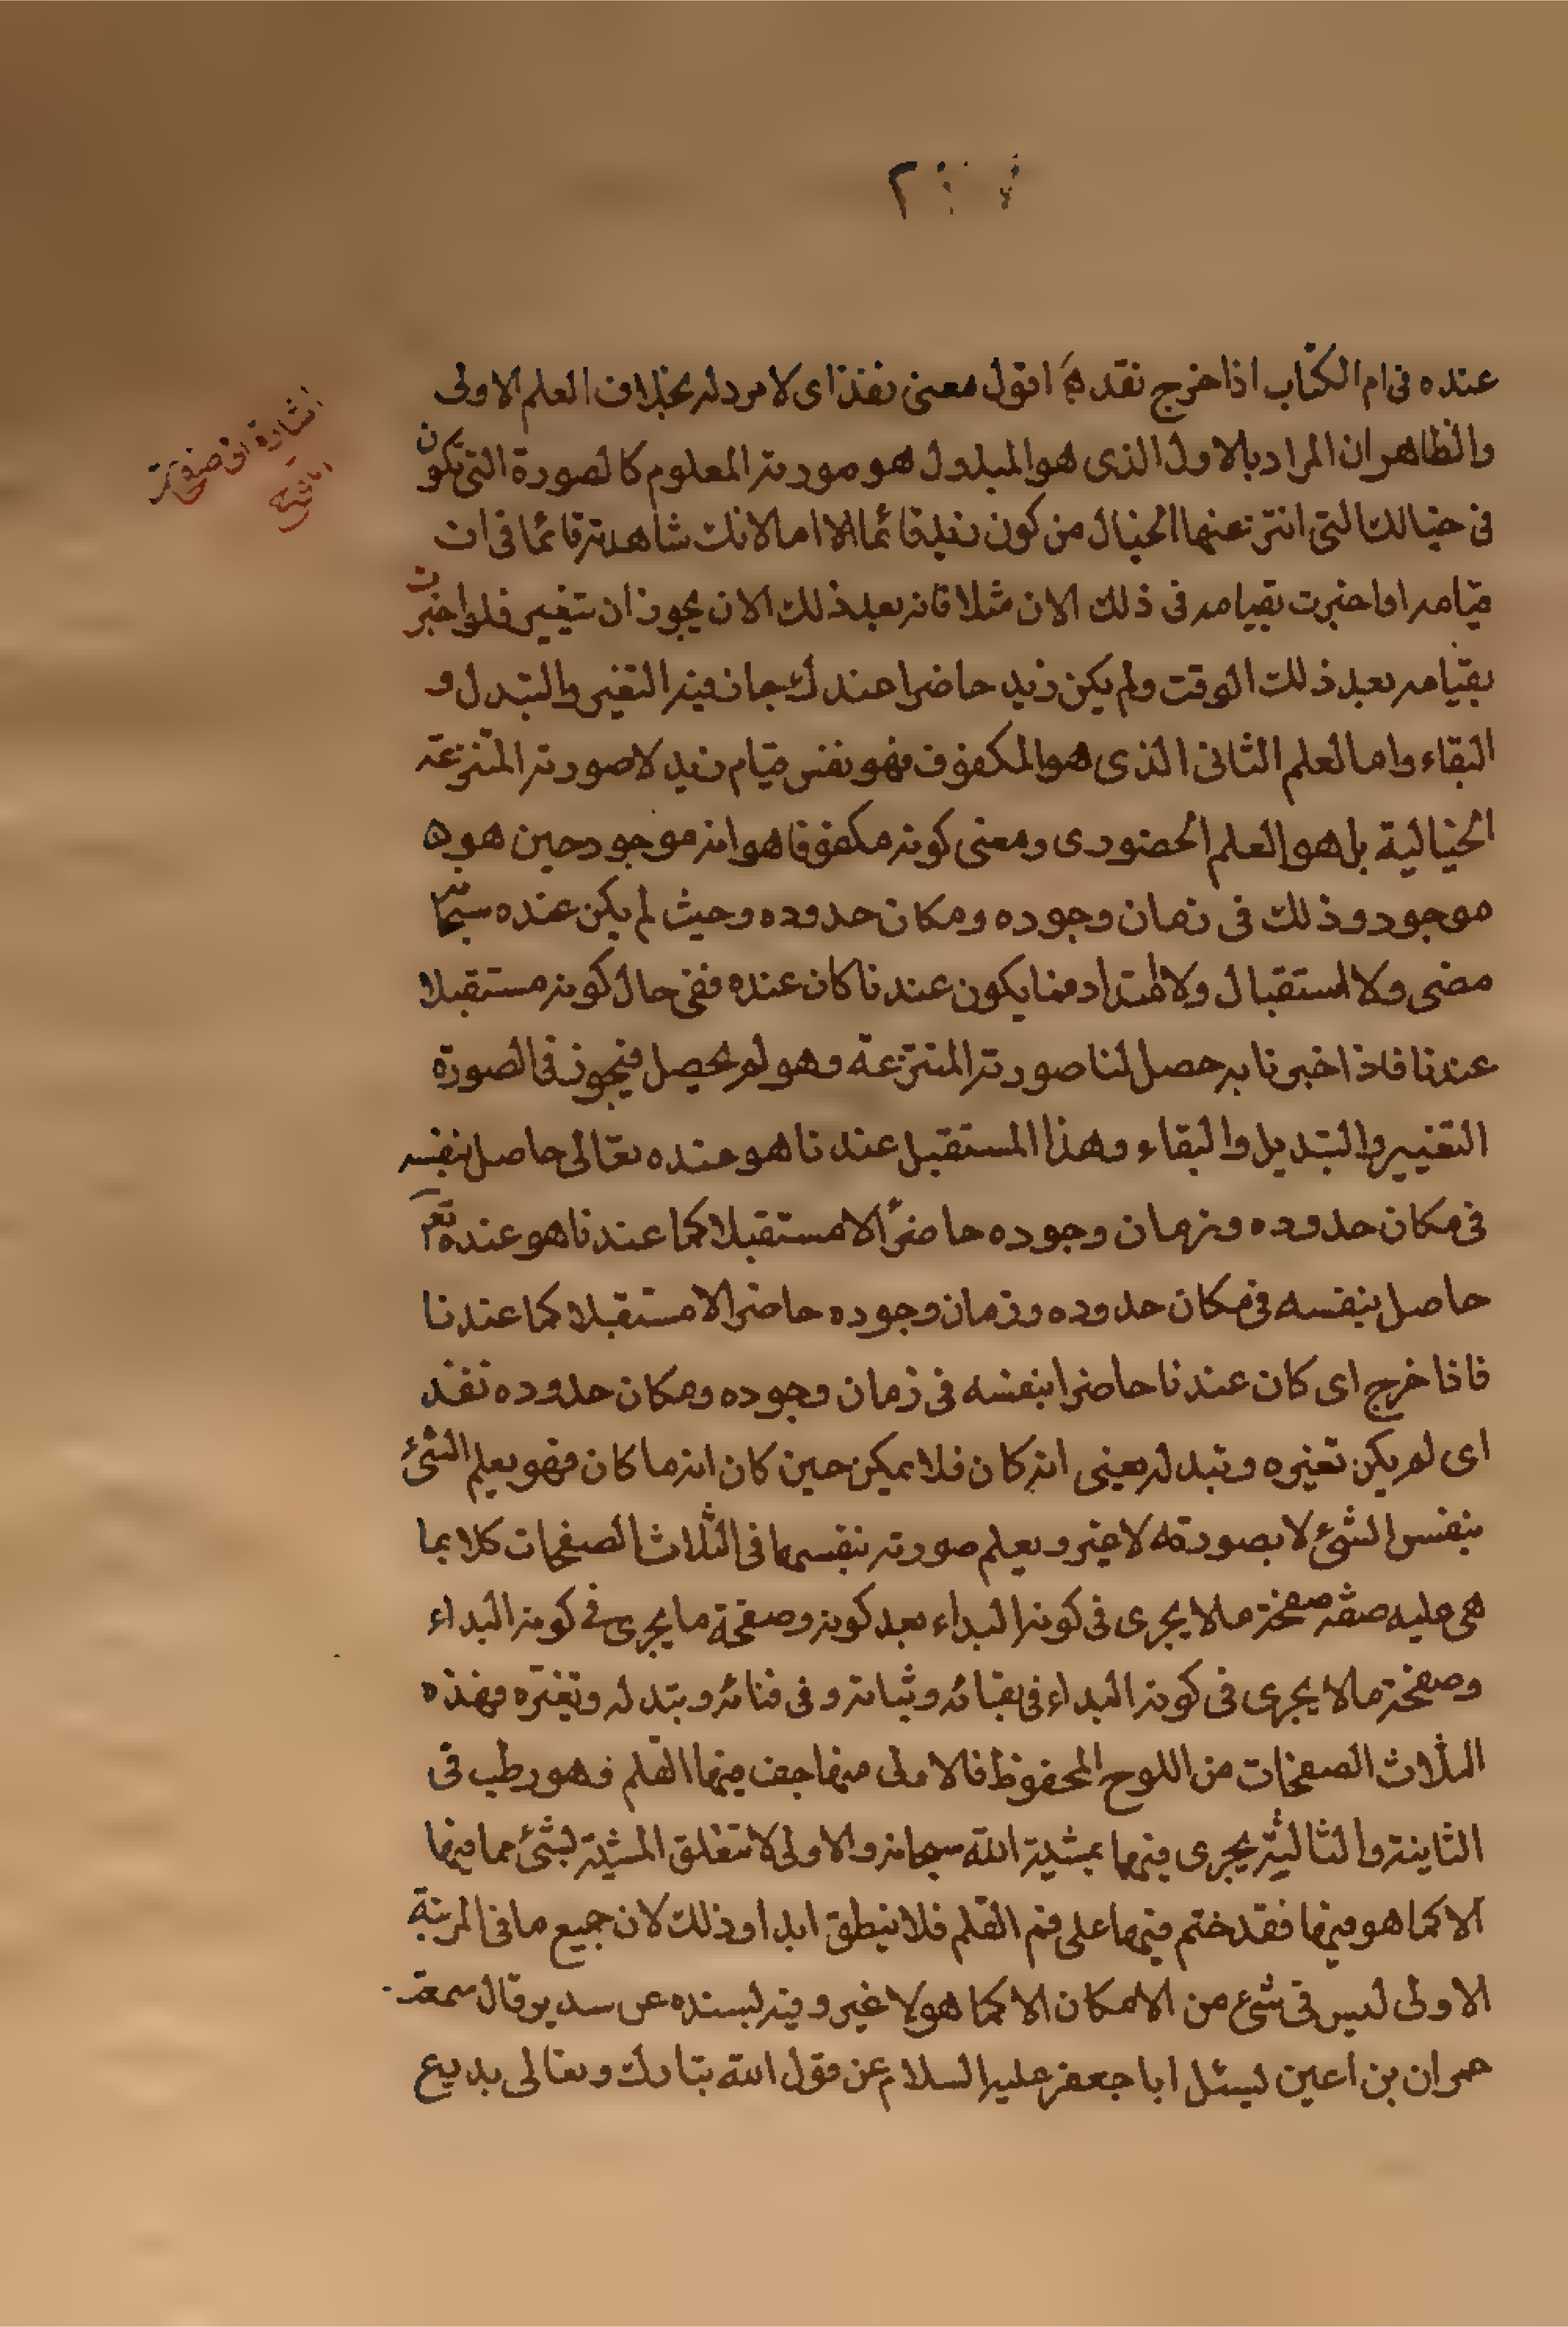 عنده فى ام الكتاب اذا خرج نفد اقول معنى نفذ اى لا مرد له بخلاف العلم الاولى
والظاهر ان المراد بالاول الذى هو المبذول هو صورته المعلوم كالصورة التى تكون
فى خيالك التى انتزعها الخيال من كون زيد قائما لانك شاهدته قائما فى ان
قيامه او اخبرت بقيامه فى ذلك الان مثلا فانه بعد ذلك الان يجوز ان يتغير فلو اخبرت
بقيامه بعد ذلك الوقت ولم يكن زيد حاضرا عندك جاز فيه التغير والتبدل و
البقاء واما العلم الثانى الذى هو المكفوف فهو نفس قيام زيد لا صورته المنتزعة
الخيالية بل هو العلم الحضورى ومعنى كونه مكفوفا هو انه موجود حين هو
موجود وذلك فى زمان وجوده ومكان حدوده وحيث لم يكن عنده
مضى ولا استقبال ولا امتداد مما يكون عندنا كان عنده ففى حال كونه مستقبلا
عندنا فاذا اخبرنا به حصل لنا صورته المنتزعة وهو لم يحصل فيجوز فى الصورة
التغيير والتبديل والبقاء وهذا المستقبل عندنا هو عنده تعالى حاصل بنفسه
فى مكان حدوده وزمان وجوده حاضراً لا مستقبلا كما عندنا هو عنده
حاصل بنفسه فى مكان حدوده وزمان وجوده حاضرا لا مستقبلا كما عندنا
فاذا خرج اى كان عندنا حاضرا بنفسه فى زمان وجوده ومكان حدوده نفذ
اى لم يكن تغيره وتبدله يعنى انه كان فلا يمكن حين كان انه ما كان فهو يعلم الشئ
بنفس الشئ لا بصورته لا غير ويعلم صورته بنفسها فى الثلاث الصفحات كلا بما
هى عليه صفحة ما لا يجرى فى كونه البداء بعد كونه وصفحة ما يجرى فى كونه البداء
وصفحة ما لا يجرى فى كونه البداء فى بقائه وثباته وفى فنائه وتبدله وتغيره فهذه
الثلاث الصفحات من اللوح المحفوظ فالاولى منها جف فيها القلم فهو رطب فى
الثانية والثالثة يجرى فيهما بمشية الله سبحانه والاولى لا تتعلق المشية بشئ مما فيها
الا كما هو فيها فقد ختم فيها على فم القلم فلا ينطق ابدا وذلك لان جميع ما فى المرتبة
الاولى ليس فى شئ من الامكان الا كما هو لا غير وفيه بسنده عن سدير قال سمعت
حمران بن اعين يسئل ابا جعفر عليه السلام عن قول الله تبارك وتعالى بديع